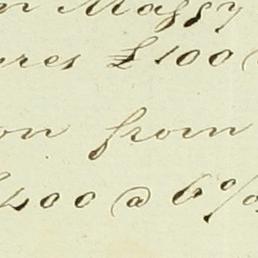 Maggy
res £100
on from
400 @ 6%